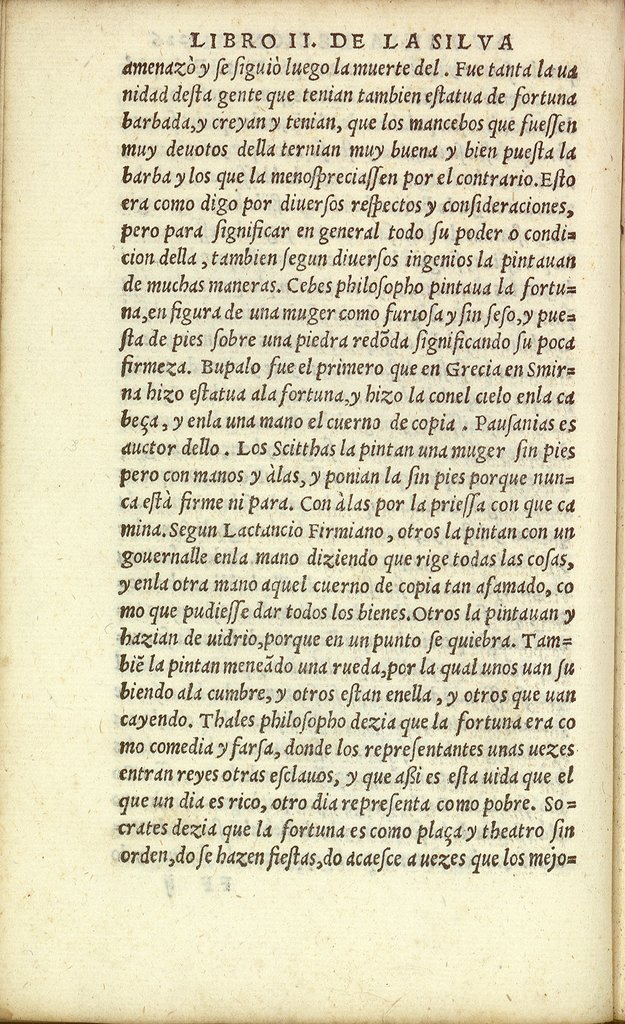 LIBRO II. DE LA SILVA
amenazò y ſe ſiguiò luego la muerte del. Fue tanta la ua
nidad deſta gente que tenian tambien eſtatua de fortuna
barbada, y creyan y tenian, que los mancebos que fueſſen
muy deuotos della ternian muy buena y bien pueſta la
barba y los que la menoſpreciaſſen por el contrario. Eſto
era como digo por diuerſos reſpectos y conſideraciones,
pero para ſignificar en general todo ſu poder o condi=
cion della, tambien ſegun diuerſos ingenios la pintauan
de muchas maneras. Cebes philoſopho pintaua la fortu=
na, en figura de una muger como furioſa y ſin ſeſo, y pue=
ſta de pies ſobre una piedra redõda ſignificando ſu poca
firmeza. Bupalo fue el primero que en Grecia en Smir=
na hizo eſtatua ala fortuna, y hizo la conel cielo enla ca
beça, y enla una mano el cuerno de copia. Pauſanias es
auctor dello. Los Scitthas la pintan una muger ſin pies
pero con manos y àlas, y ponian la ſin pies porque nun=
ca eſtà firme ni para. Con àlas por la prieſſa con que ca
mina. Segun Lactancio Firmiano, otros la pintan con un
gouernalle enla mano diziendo que rige todas las coſas,
y enla otra mano aquel cuerno de copia tan afamado, co
mo que pudieſſe dar todos los bienes. Otros la pintauan y
hazian de uidrio, porque en un punto ſe quiebra. Tam=
biẽ la pintan meneãdo una rueda, por la qual unos uan ſu
biendo ala cumbre, y otros eſtan enella, y otros que uan
cayendo. Thales philoſopho dezia que la fortuna era co
mo comedia y farſa, donde los repreſentantes unas uezes
entran reyes otras eſclauos, y que aßi es eſta uida que el
que un dia es rico, otro dia repreſenta como pobre. So=
crates dezia que la fortuna es como plaça y theatro ſin
orden, do ſe hazen fieſtas, do acaeſce a uezes que los mejo=